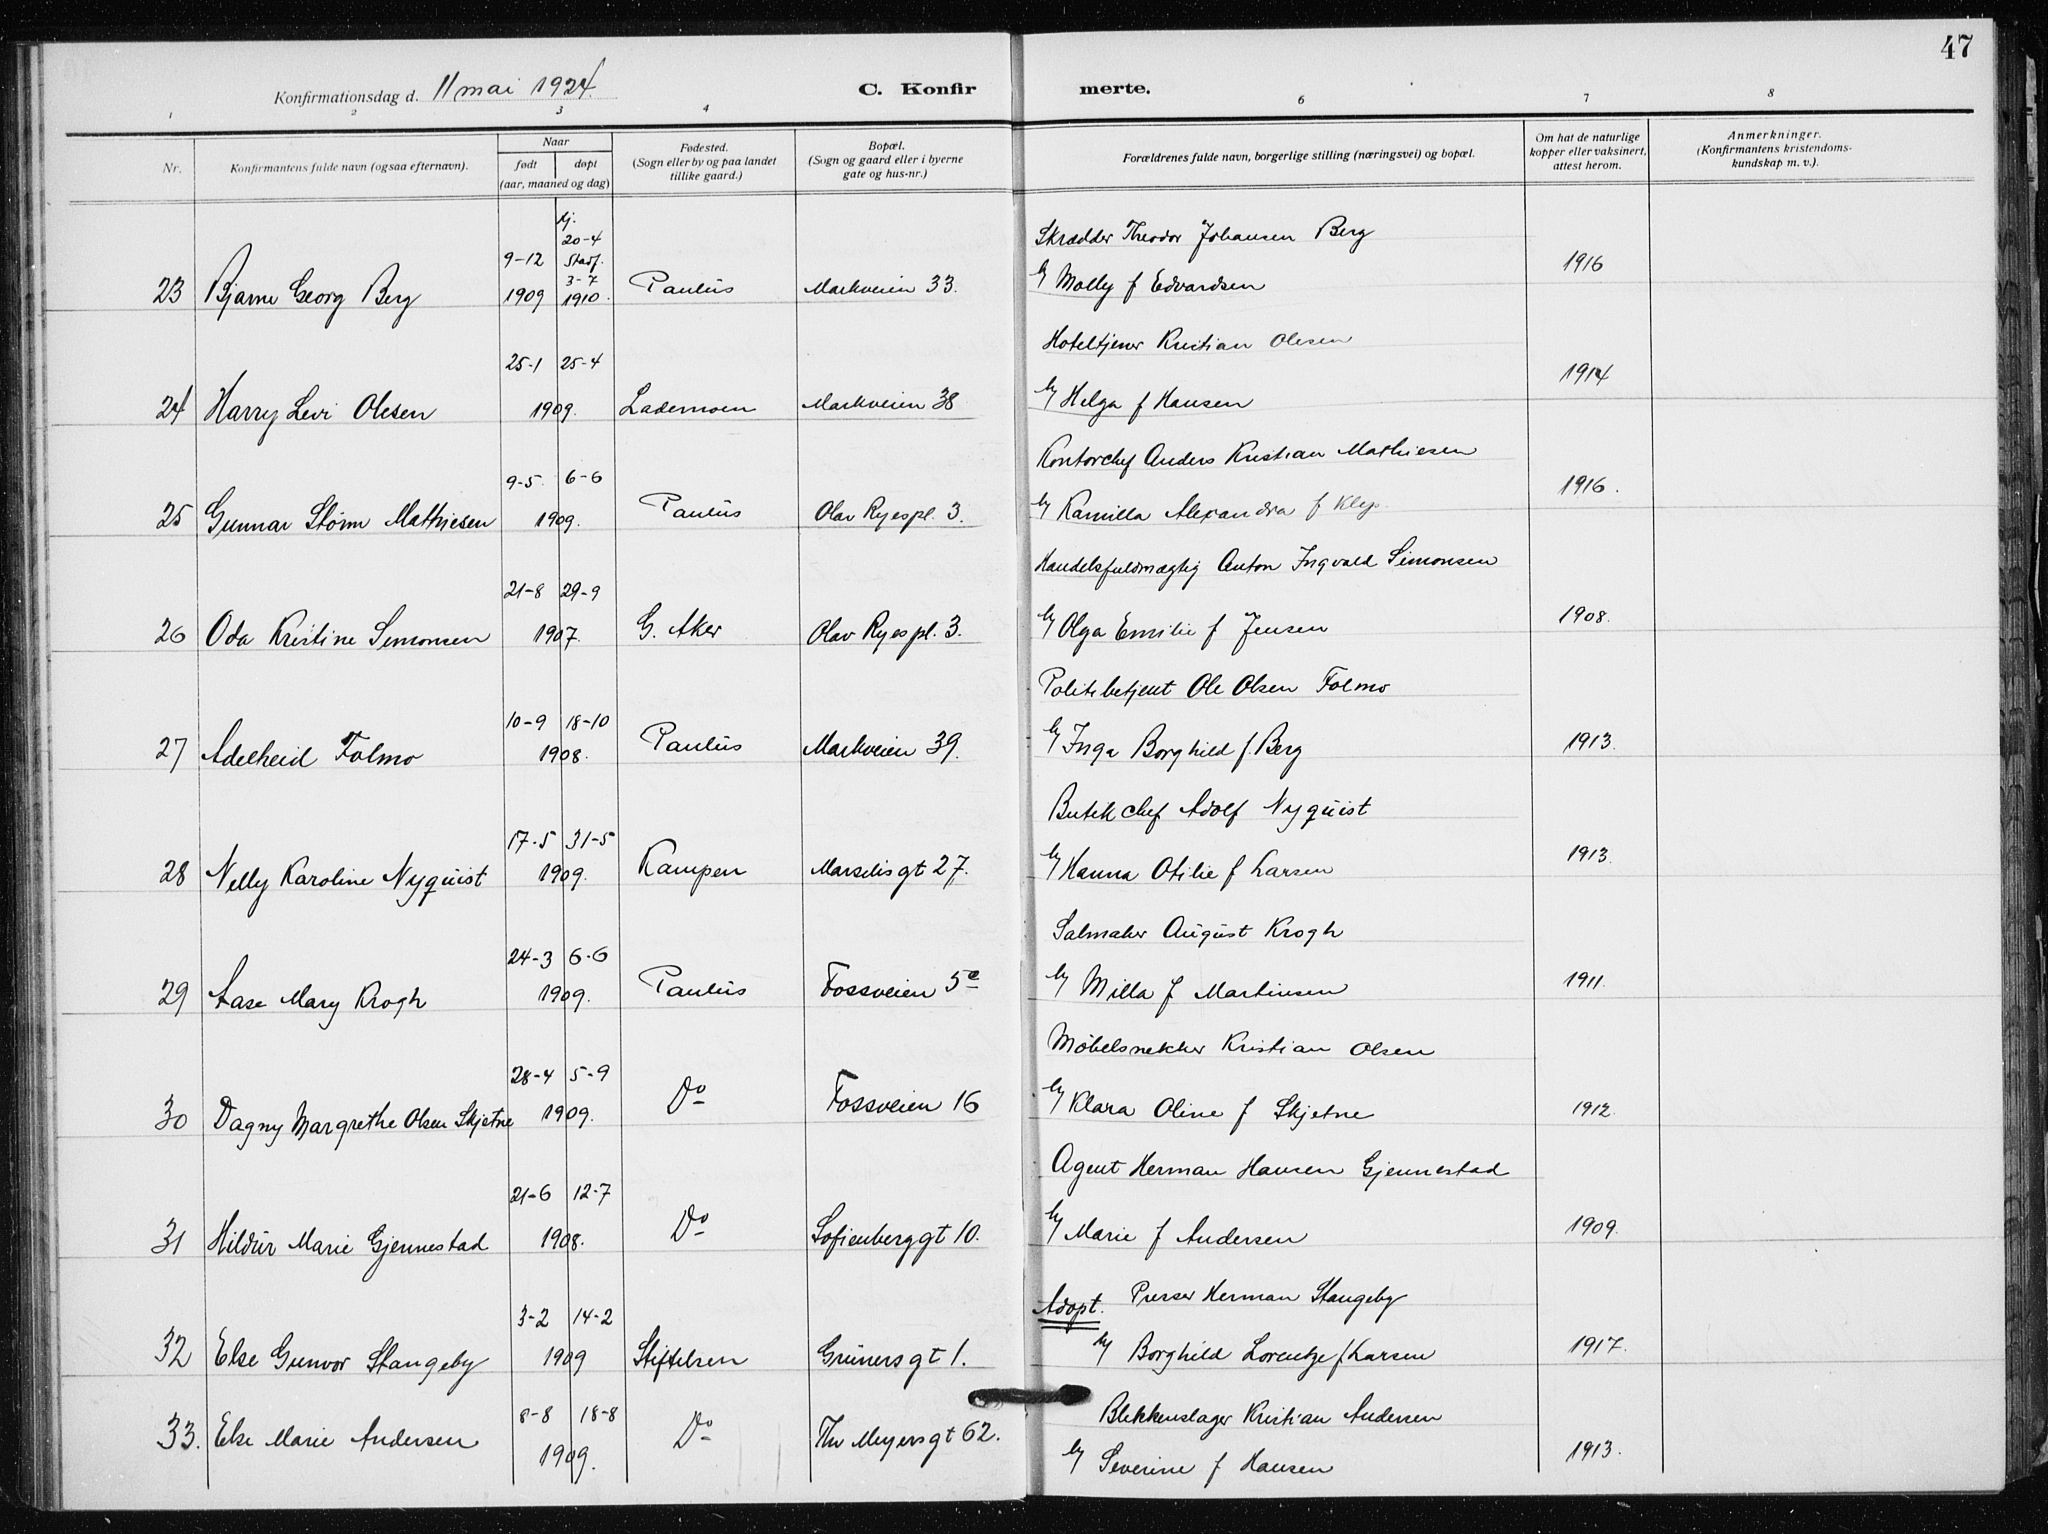 47
Konfirmationsdag d. 11 mai 1924.
C. Konfirmerte.
1 2 3 4 6 7 8
Nr. Konfirmantens fulde navn (ogsaa efternavn). Naar født døpt (aar, maaned og dag) Fødested. (Sogn eller by og paa landet tillike gaard.) Bopæl. (Sogn og gaard eller i byerne gate og hus-nr.) Forældrenes fulde navn, borgerlige stilling (næringsvei) og bopæl. Om hat de naturlige kopper eller vaksinert, attest herom. Anmerkninger. (Konfirmantens kristendomskundskap m. v.).
hj. 20-4 Skrædder Theodor Johansen Berg
9-12 Stadf. 3-7
23 Bjarne Georg Berg 1909 1910. Paulus Markveien 33. og Molly f Edvardsen 1916
25-1 25-4 Hoteltjener Kristian Olesen
24 Harry Levi Olesen 1909. Lademoen Markveien 38 og Helga f Hansen 1914
9-5. 6-6 Kontorchef Anders Kristian Mathiesen
25 Gunnar Størm Mathiesen 1909. Paulus Olav Ryespl. 3. og Kamilla Alexandra f 1916.
21-8 29-9 Handelsfuldmægtig Anton Ingvald Simonsen
26 Oda Kristine Simonsen 1907. G. Aker Olav Ryespl. 3. og Olga Emilie f Jensen 1908.
10-9 18-10 Politibetjent Ole Olsen Folmo
27 Adelheid Folmo 1908. Paulus Markveien 39. og Inga Borghild f. Berg 1913.
17-5 31-5 Butikchef Adolf Nyquist
28 Nelly Karoline Nyquist 1909. Kampen Marselisgt 27. og Hanna Otilie f Larsen 1913.
24-3 6-6 Salmaker August Krogh
29 Aase Mary Krogh 1909. Paulus Fossveien 5c og Milla f Martinsen 1911.
28-4 5-9 Møbelsnekker Kristian Olsen
30 Dagny Margrethe Olsen Skjetne 1909. Do Fossveien 16 og Klara Oline f Skjetne 1912.
21-6 12-7 Agent Herman Hansen Gjennestad
31 Hildur Marie Gjennestad 1908. Do Sofienberggt 10. og Marie f Andersen 1909.
3-2 14-2 Adopt. Presser Herman Stangeby
32 Else Gunvor Stangeby 1909 Stiftelsen Grünersgt 1. og Borghild Lorentze f Larsen 1917.
8-8 18-8 Blikkenslager Kristian Andersen
33. Else Marie Andersen 1909. Do Thv Meyersgt 62. og Severine f Hansen 1913.